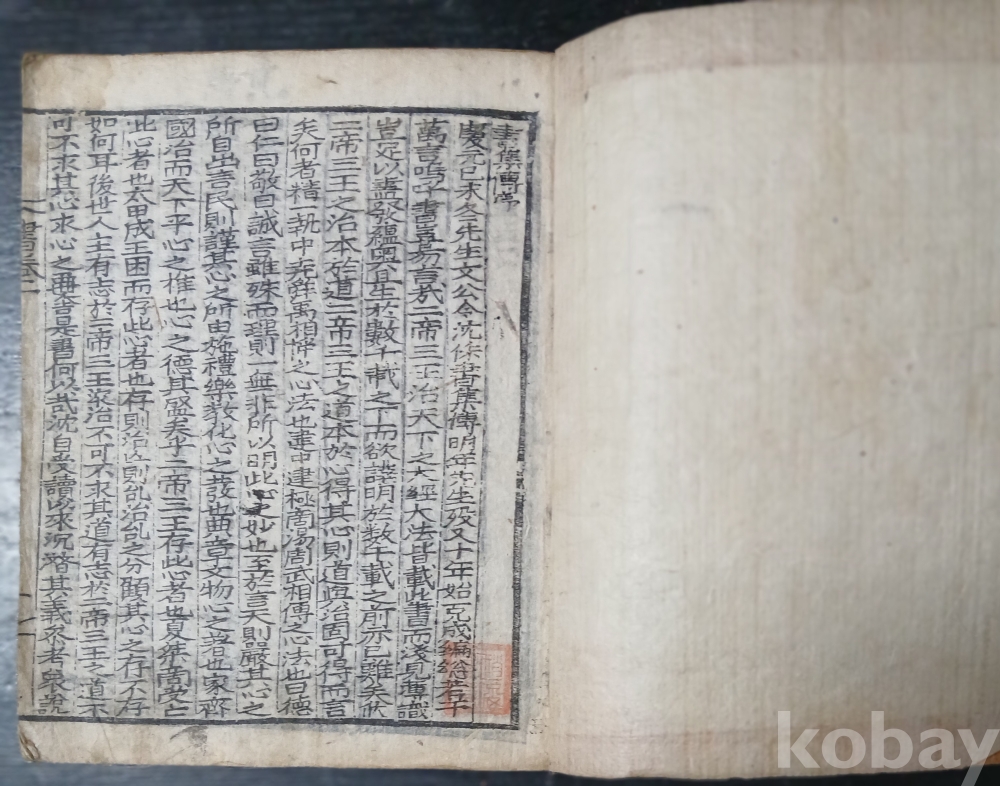 書集傳序
慶元己未冬先生文公令沈作書集傳明年先生歿又十年始克成編總若干
萬言嗚呼書豈易言哉二帝三王治天下之大經大法皆載此書而淺見薄識
豈足以盡發蘊奧且生於數千載之下而欲講明於數千載之前亦已難矣然
二帝三王之治本於道二帝三王之道本於心得其心則道與治固可得而言
矣何者精一執中堯舜禹相傳之心法也建中建極商湯周武相傳之心法也曰德
曰仁曰敬曰誠言雖殊而理則一無非所以明此心之妙也至於言天則嚴其心之
所自出言民則謹其心之所由施禮樂敎化心之發也典章文物心之著也家齊
國治而天下平心之推也心之德其盛矣乎二帝三王存此心者也夏桀商受亡
此心者也太甲成王困而存此心者也存則治亡則亂治亂之分顧其心之存不存
如何耳後世人主有志於二帝三王之治不可不求其道有志於二帝三王之道不
可不求其心求心之要舍是書何以哉沈自受讀以來沉潛其義參考衆說
kobay